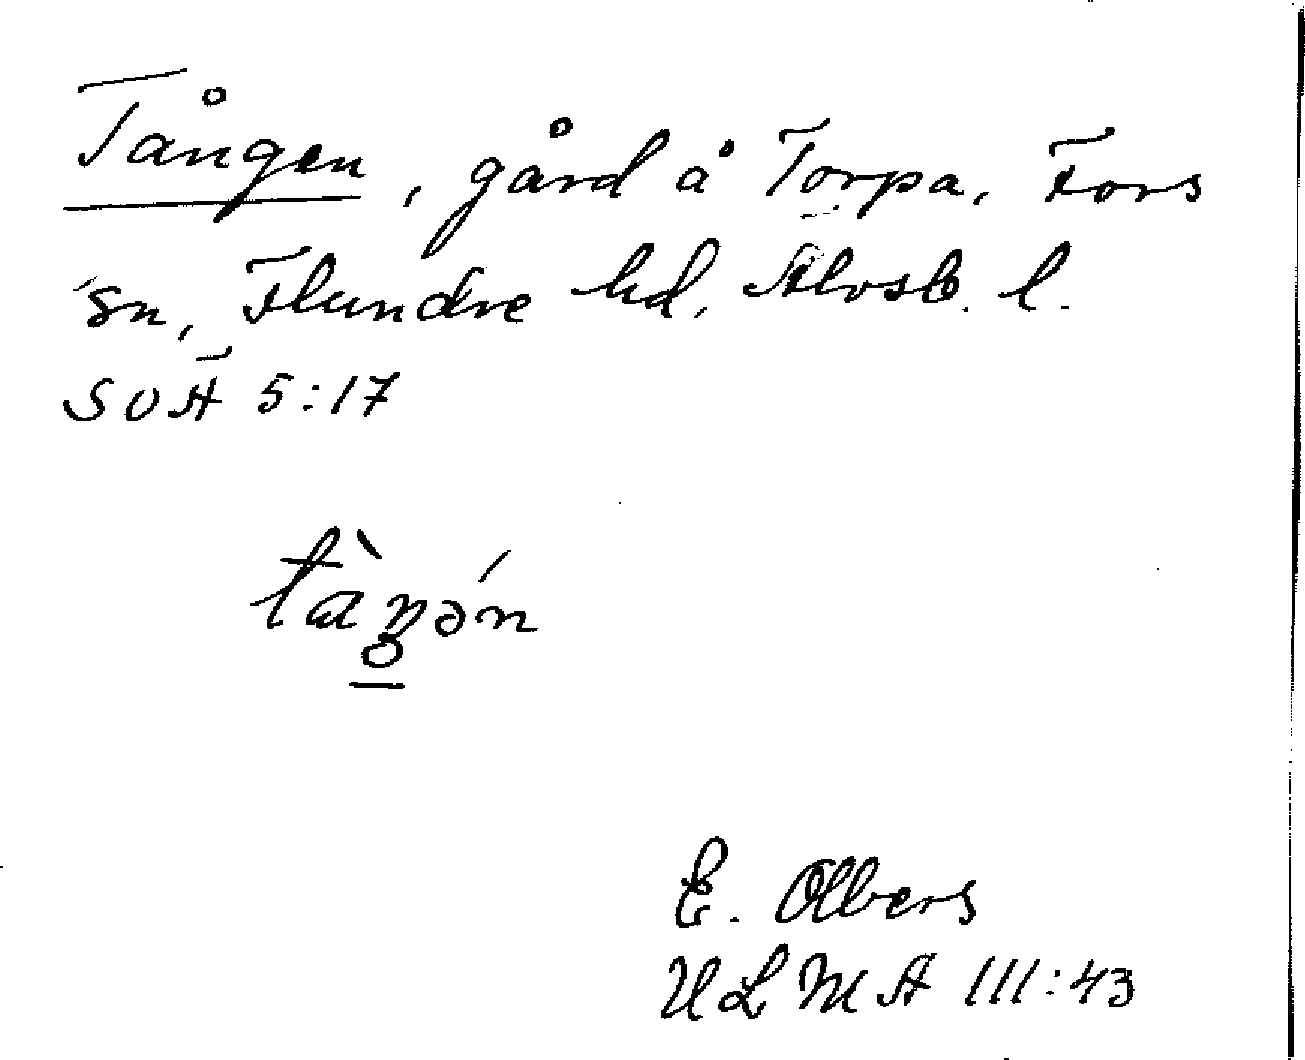 Tången, gård å Torpa, Fors
sn, Flundre hd, Älvsb. l.
SOÄ 5:17
tàŋə́n
E. Olbers
ULMA 111:43